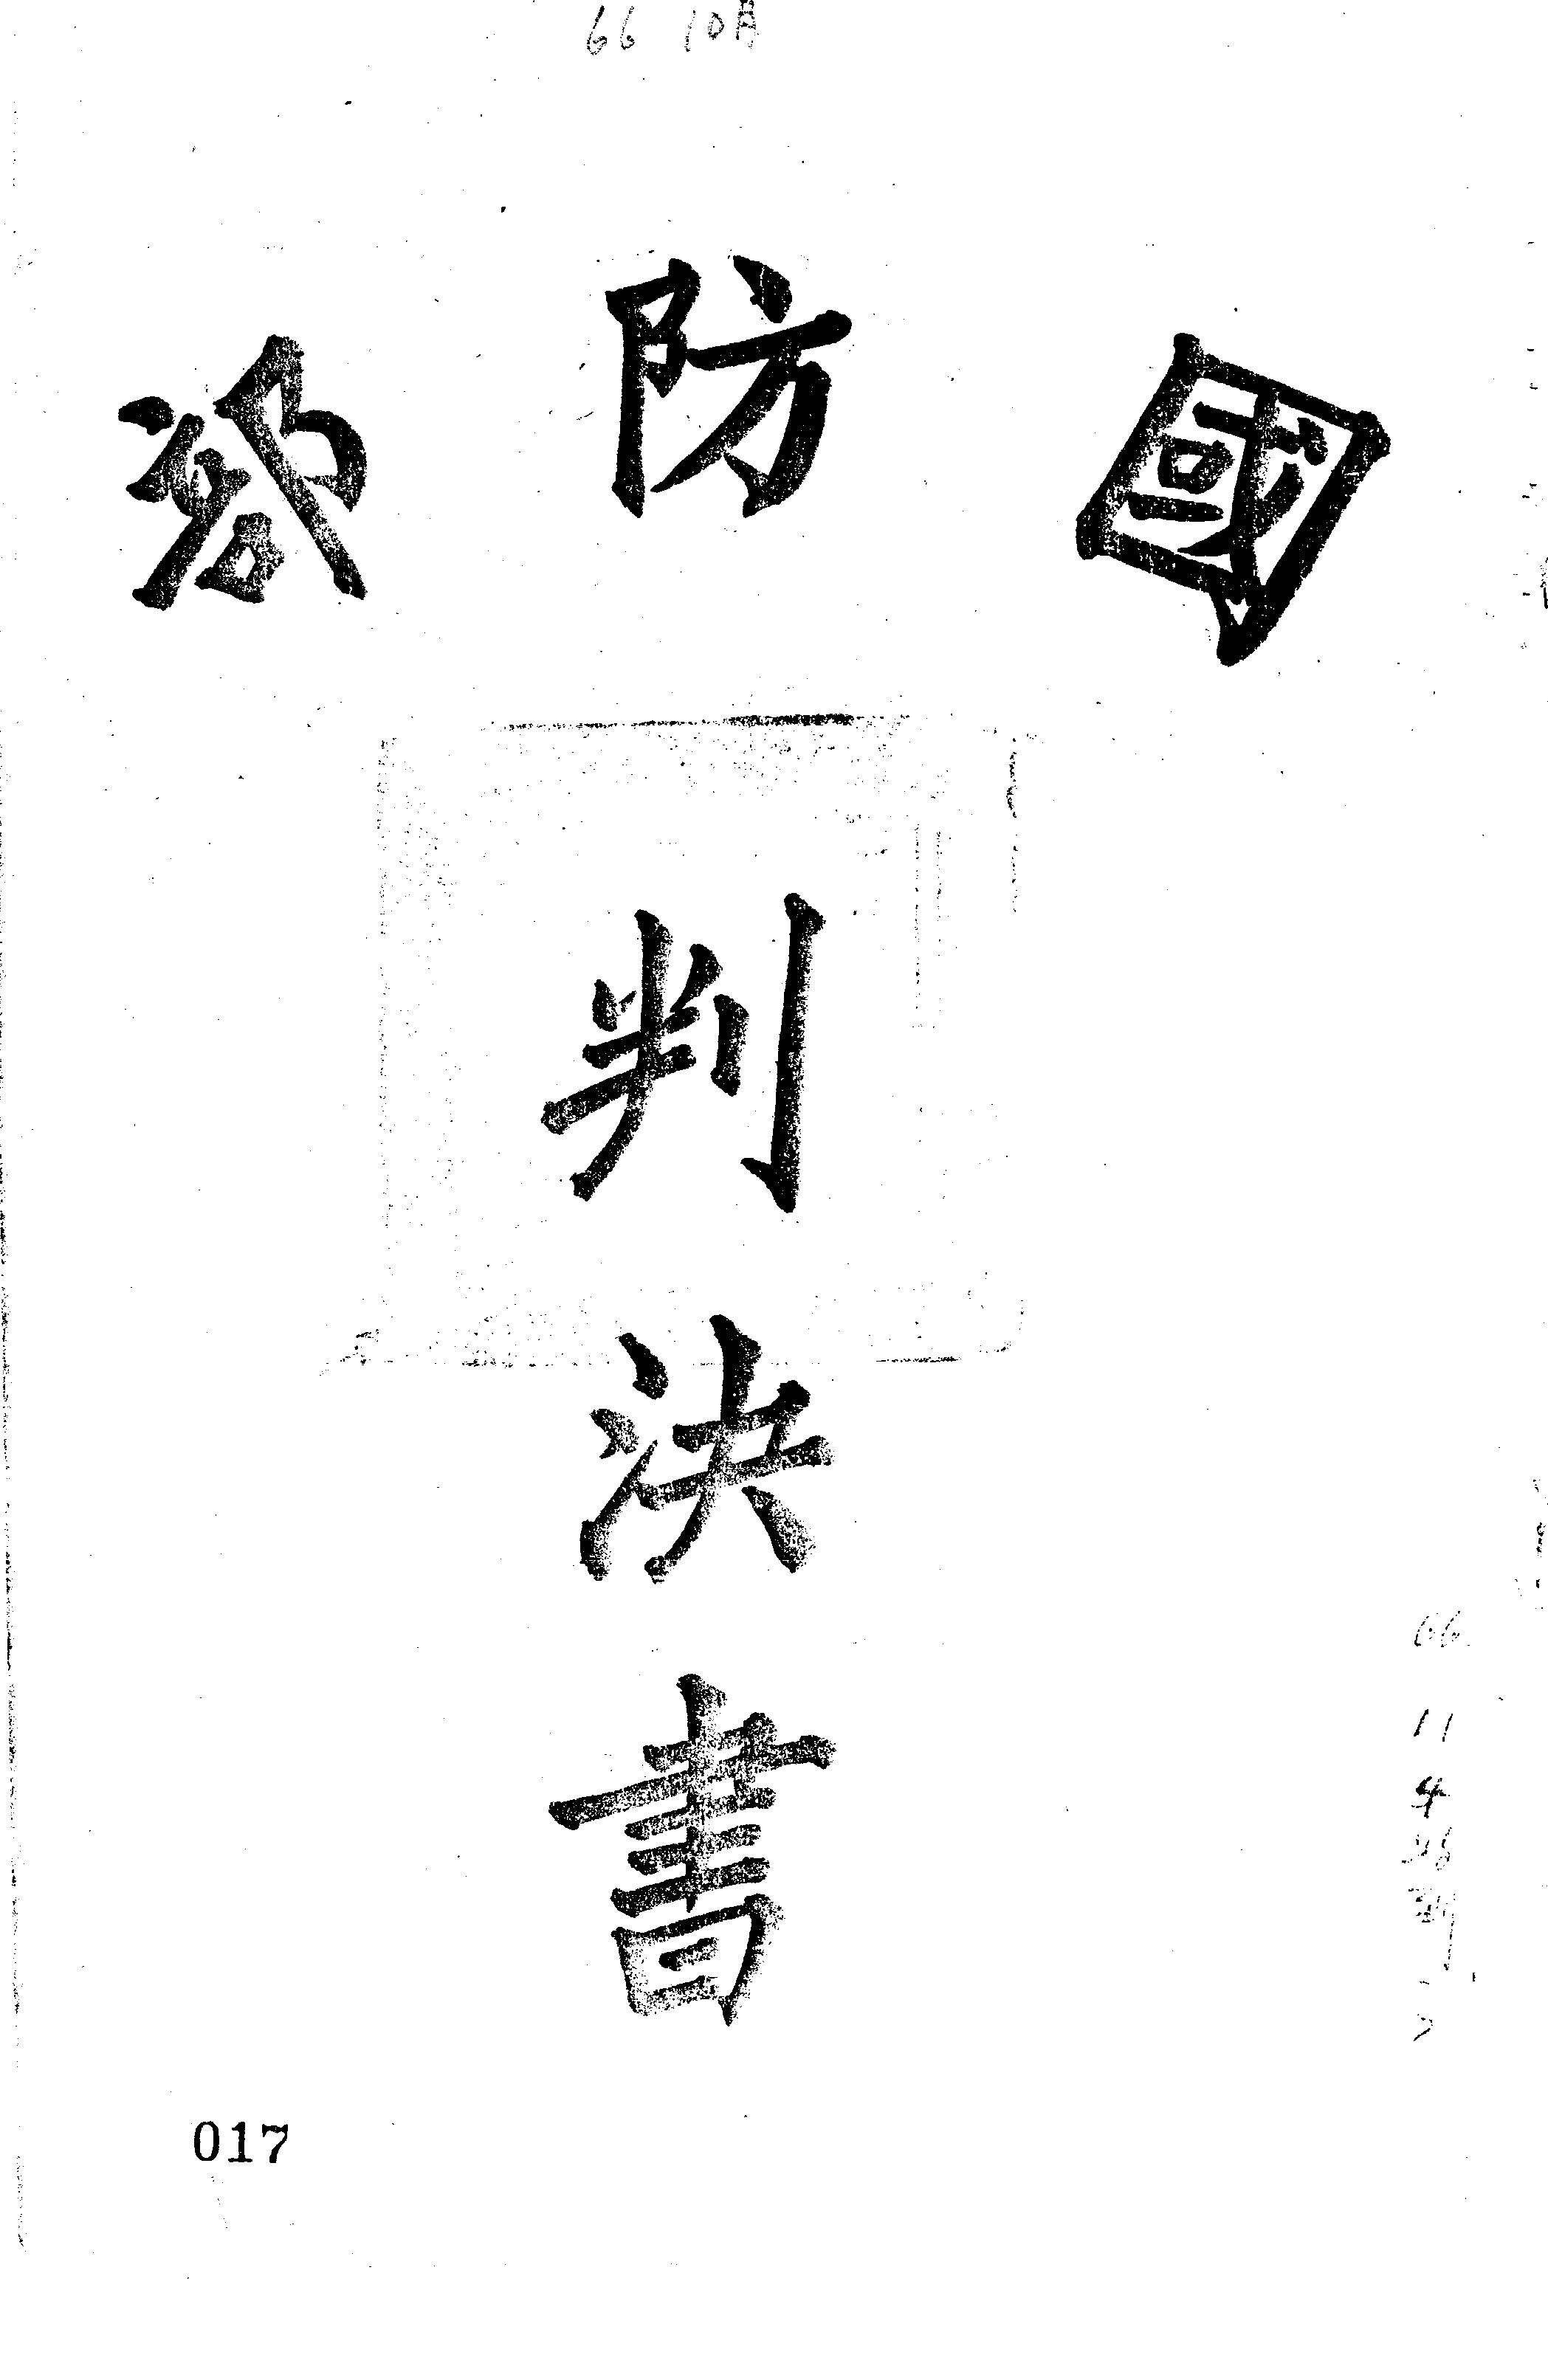 66 10月
國防部
判決書
66
11
4
017